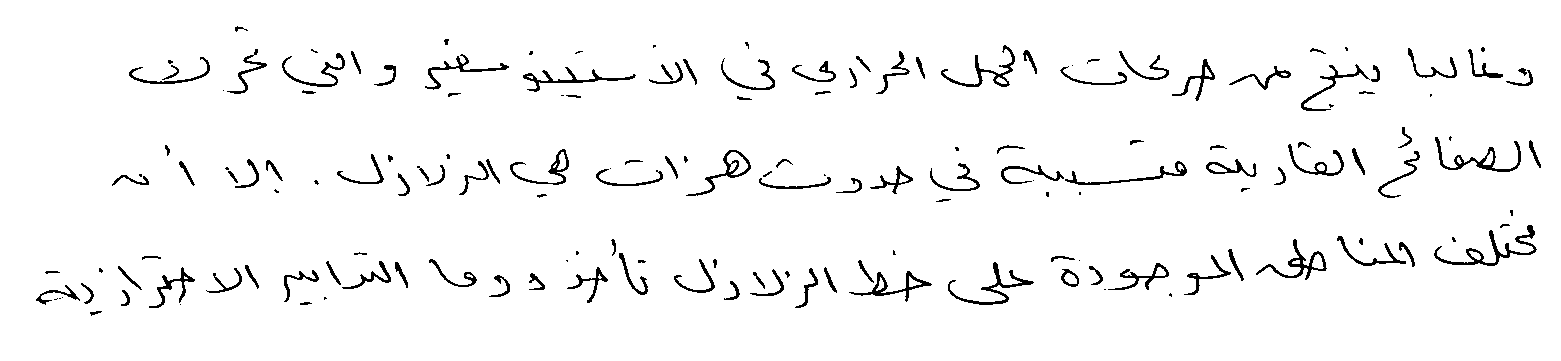 وغالبا ينتج من حركات الحمل الحراري في الأستينوسفير والتي تحرك
الصفائح القارية متسببة في حدوث هزات هي الزلازل . إلا أن
مختلف المناطق الموجودة على خط الزلازل تأخذ دوما التدابير الاحترازية